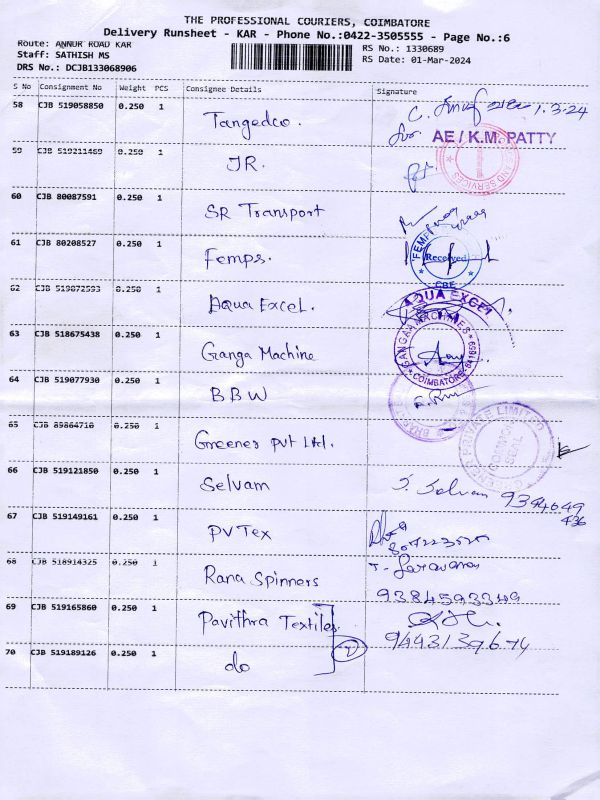 THE PROFESSIONAL COURIERS, COIMBATORE
Delivery Runsheet - KAR - Phone No.:0422-3505555 - Page No.:6
Route: ANNUR ROAD KAR
Staff: SATHISH MS
DRS No.: DCJB133068906
RS No.: 1330689
RS Date: 01-Mar-2024
S No Consignment No Weight PCS Consignee Details Signature
58 CJB 519058850 0.250 1 Tangedco. 1.3.24
for AE / K.M. PATTY
59 CJB 519211469 0.250 1 JR.
60 CJB 80087591 0.250 1 SR Transport
61 CJB 80208527 0.250 1 Femps. Received
CBE
62 CJB 519072593 0.250 1 Aqua Excel. AQUA EXCEL
63 CJB 518675438 0.250 1 Ganga Machine
COIMBATORE - 641659
64 CJB 519077930 0.250 1 BBW
65 CJB 89864710 0.250 1 Greener pvt Ltd.
66 CJB 519121850 0.250 1 Selvam S. Selvam 9344649
436
67 CJB 519149161 0.250 1 PV Tex
68 CJB 518914325 0.250 1 Rana Spinners
9384593349
69 CJB 519165860 0.250 1 Pavithra Textiles.
70 CJB 519189126 0.250 1 do